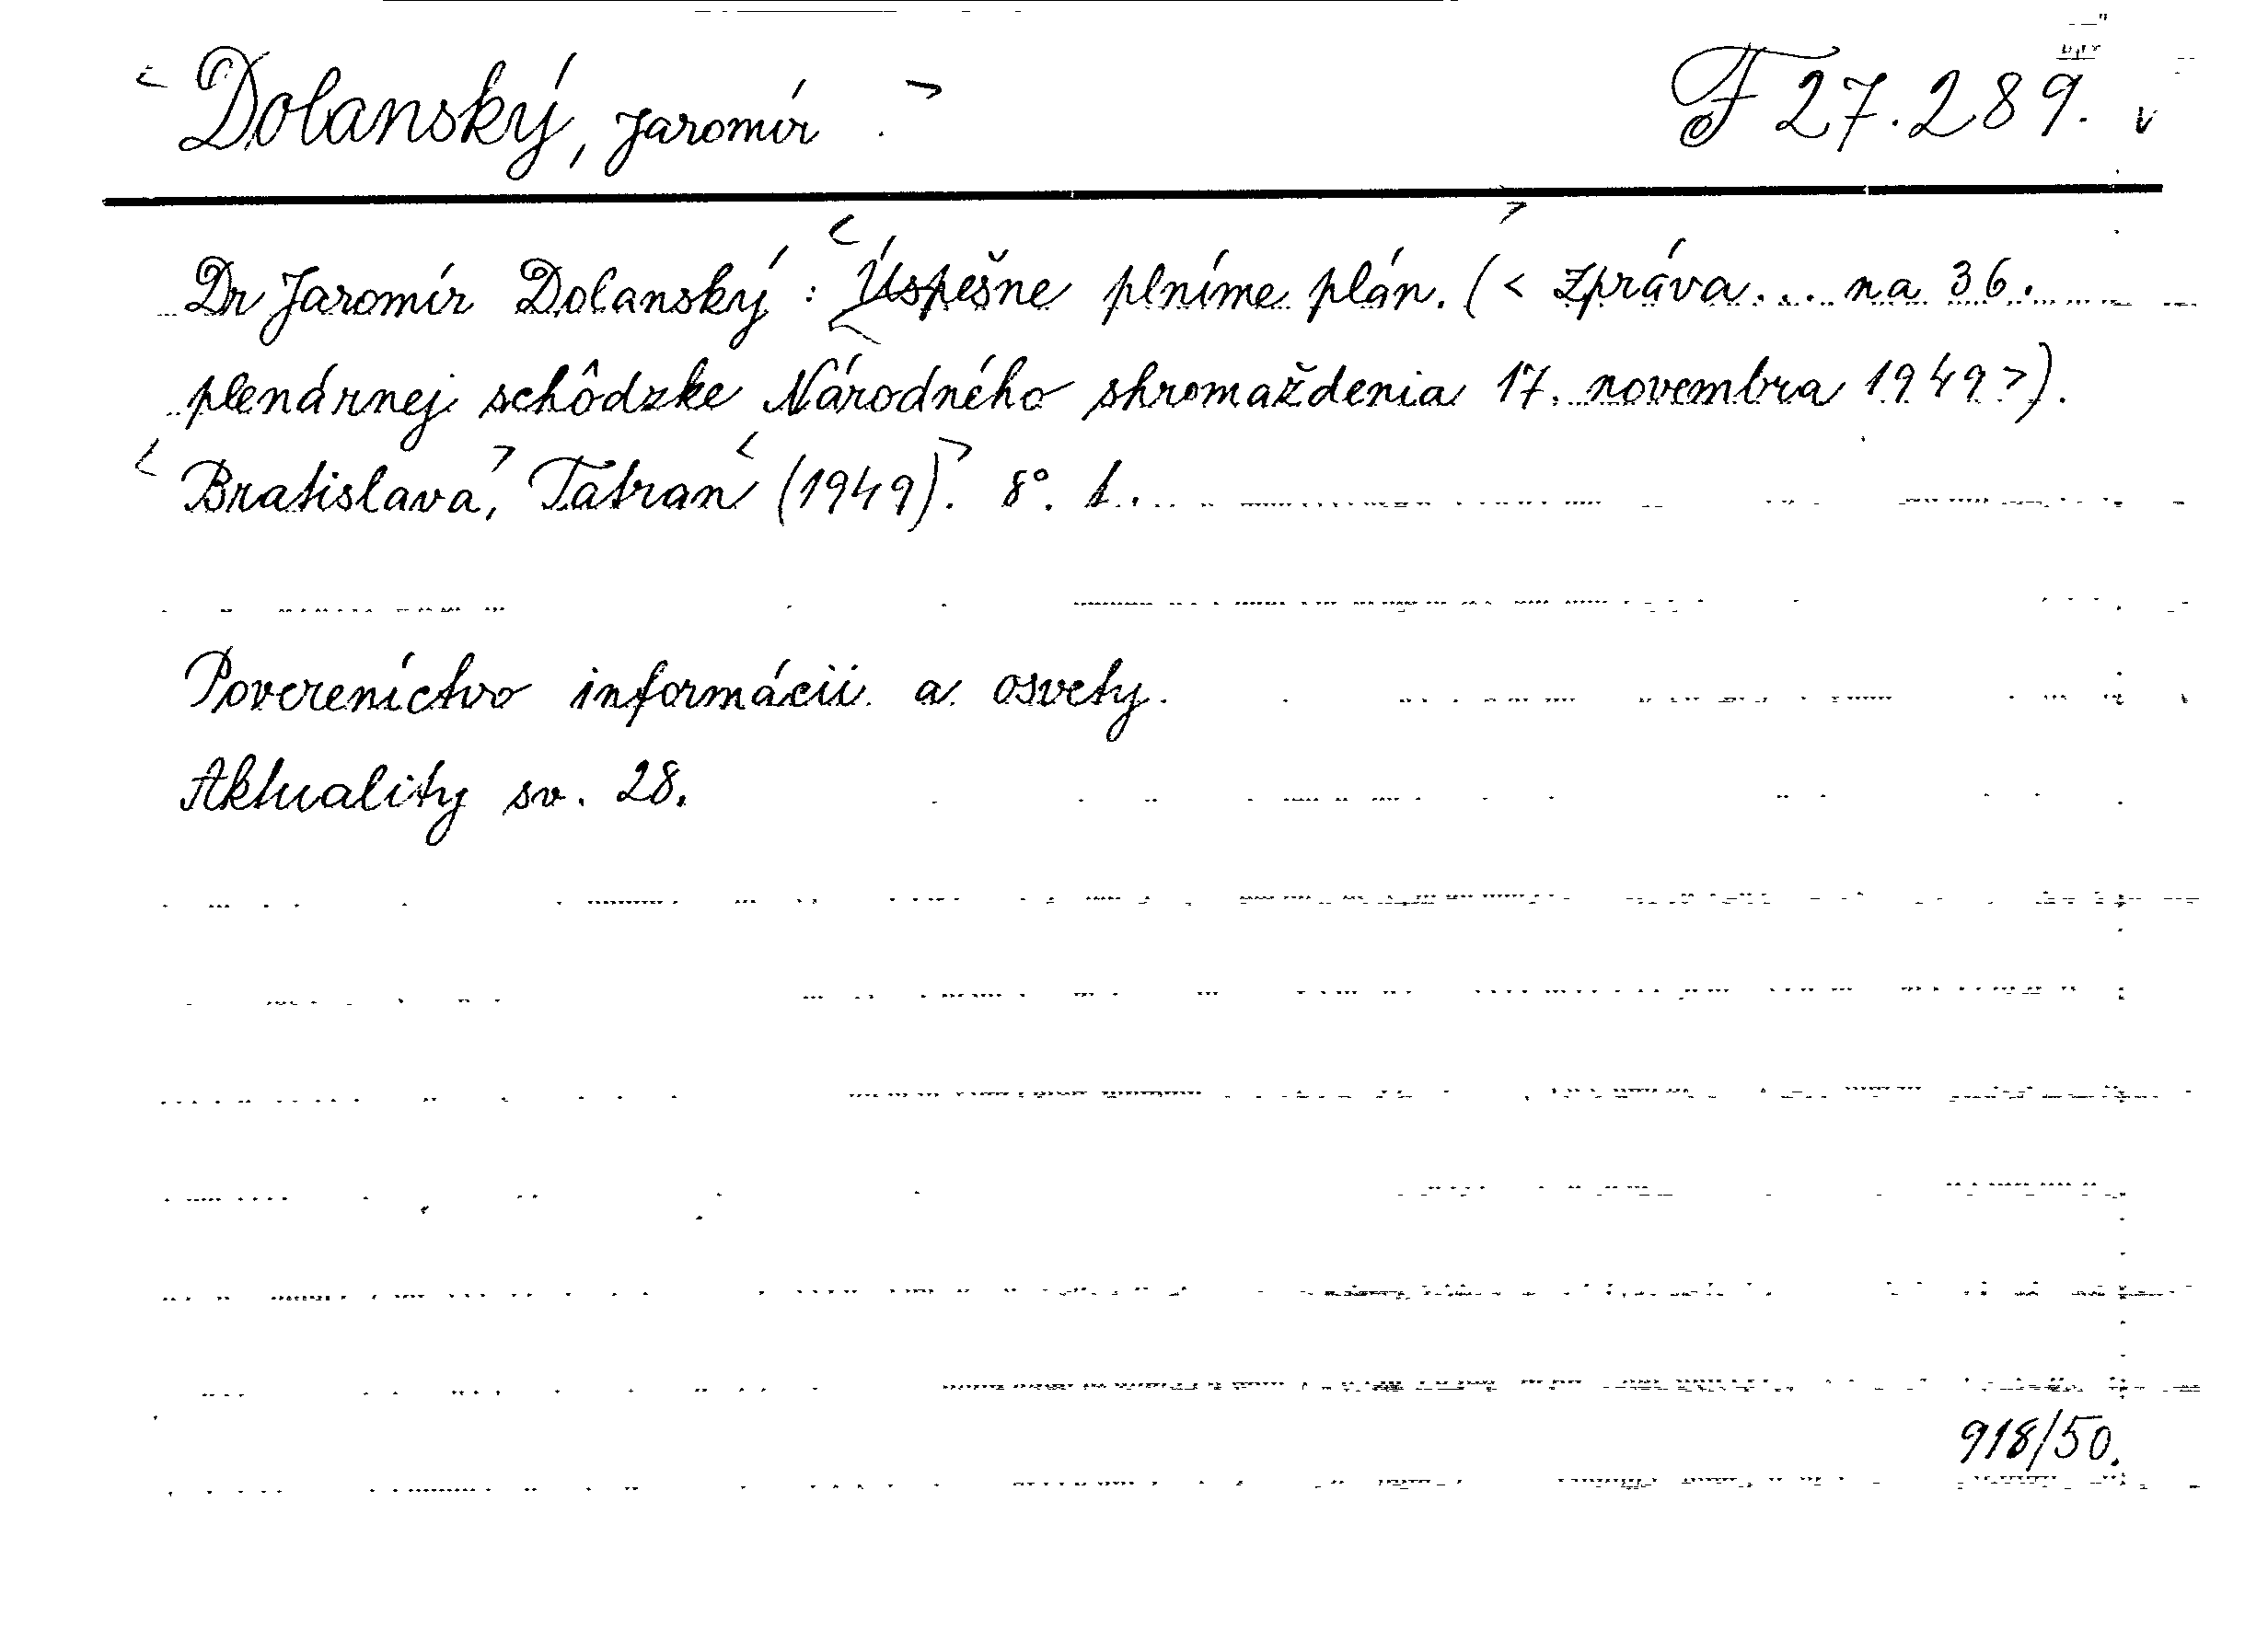 <Dolanský, Jaromír> F 27.289. v
Dr Jaromír Dolanský: <Úspešne plníme plán.> (< zpráva... na 36.
plenárnej schôdzke Národného shromaždenia 17. novembra 1949>).
<Bratislava,> Tatran <(1949)>. 8°.
Povereníctvo informácií a osvety.
Aktuality sv. 28.
918/50.